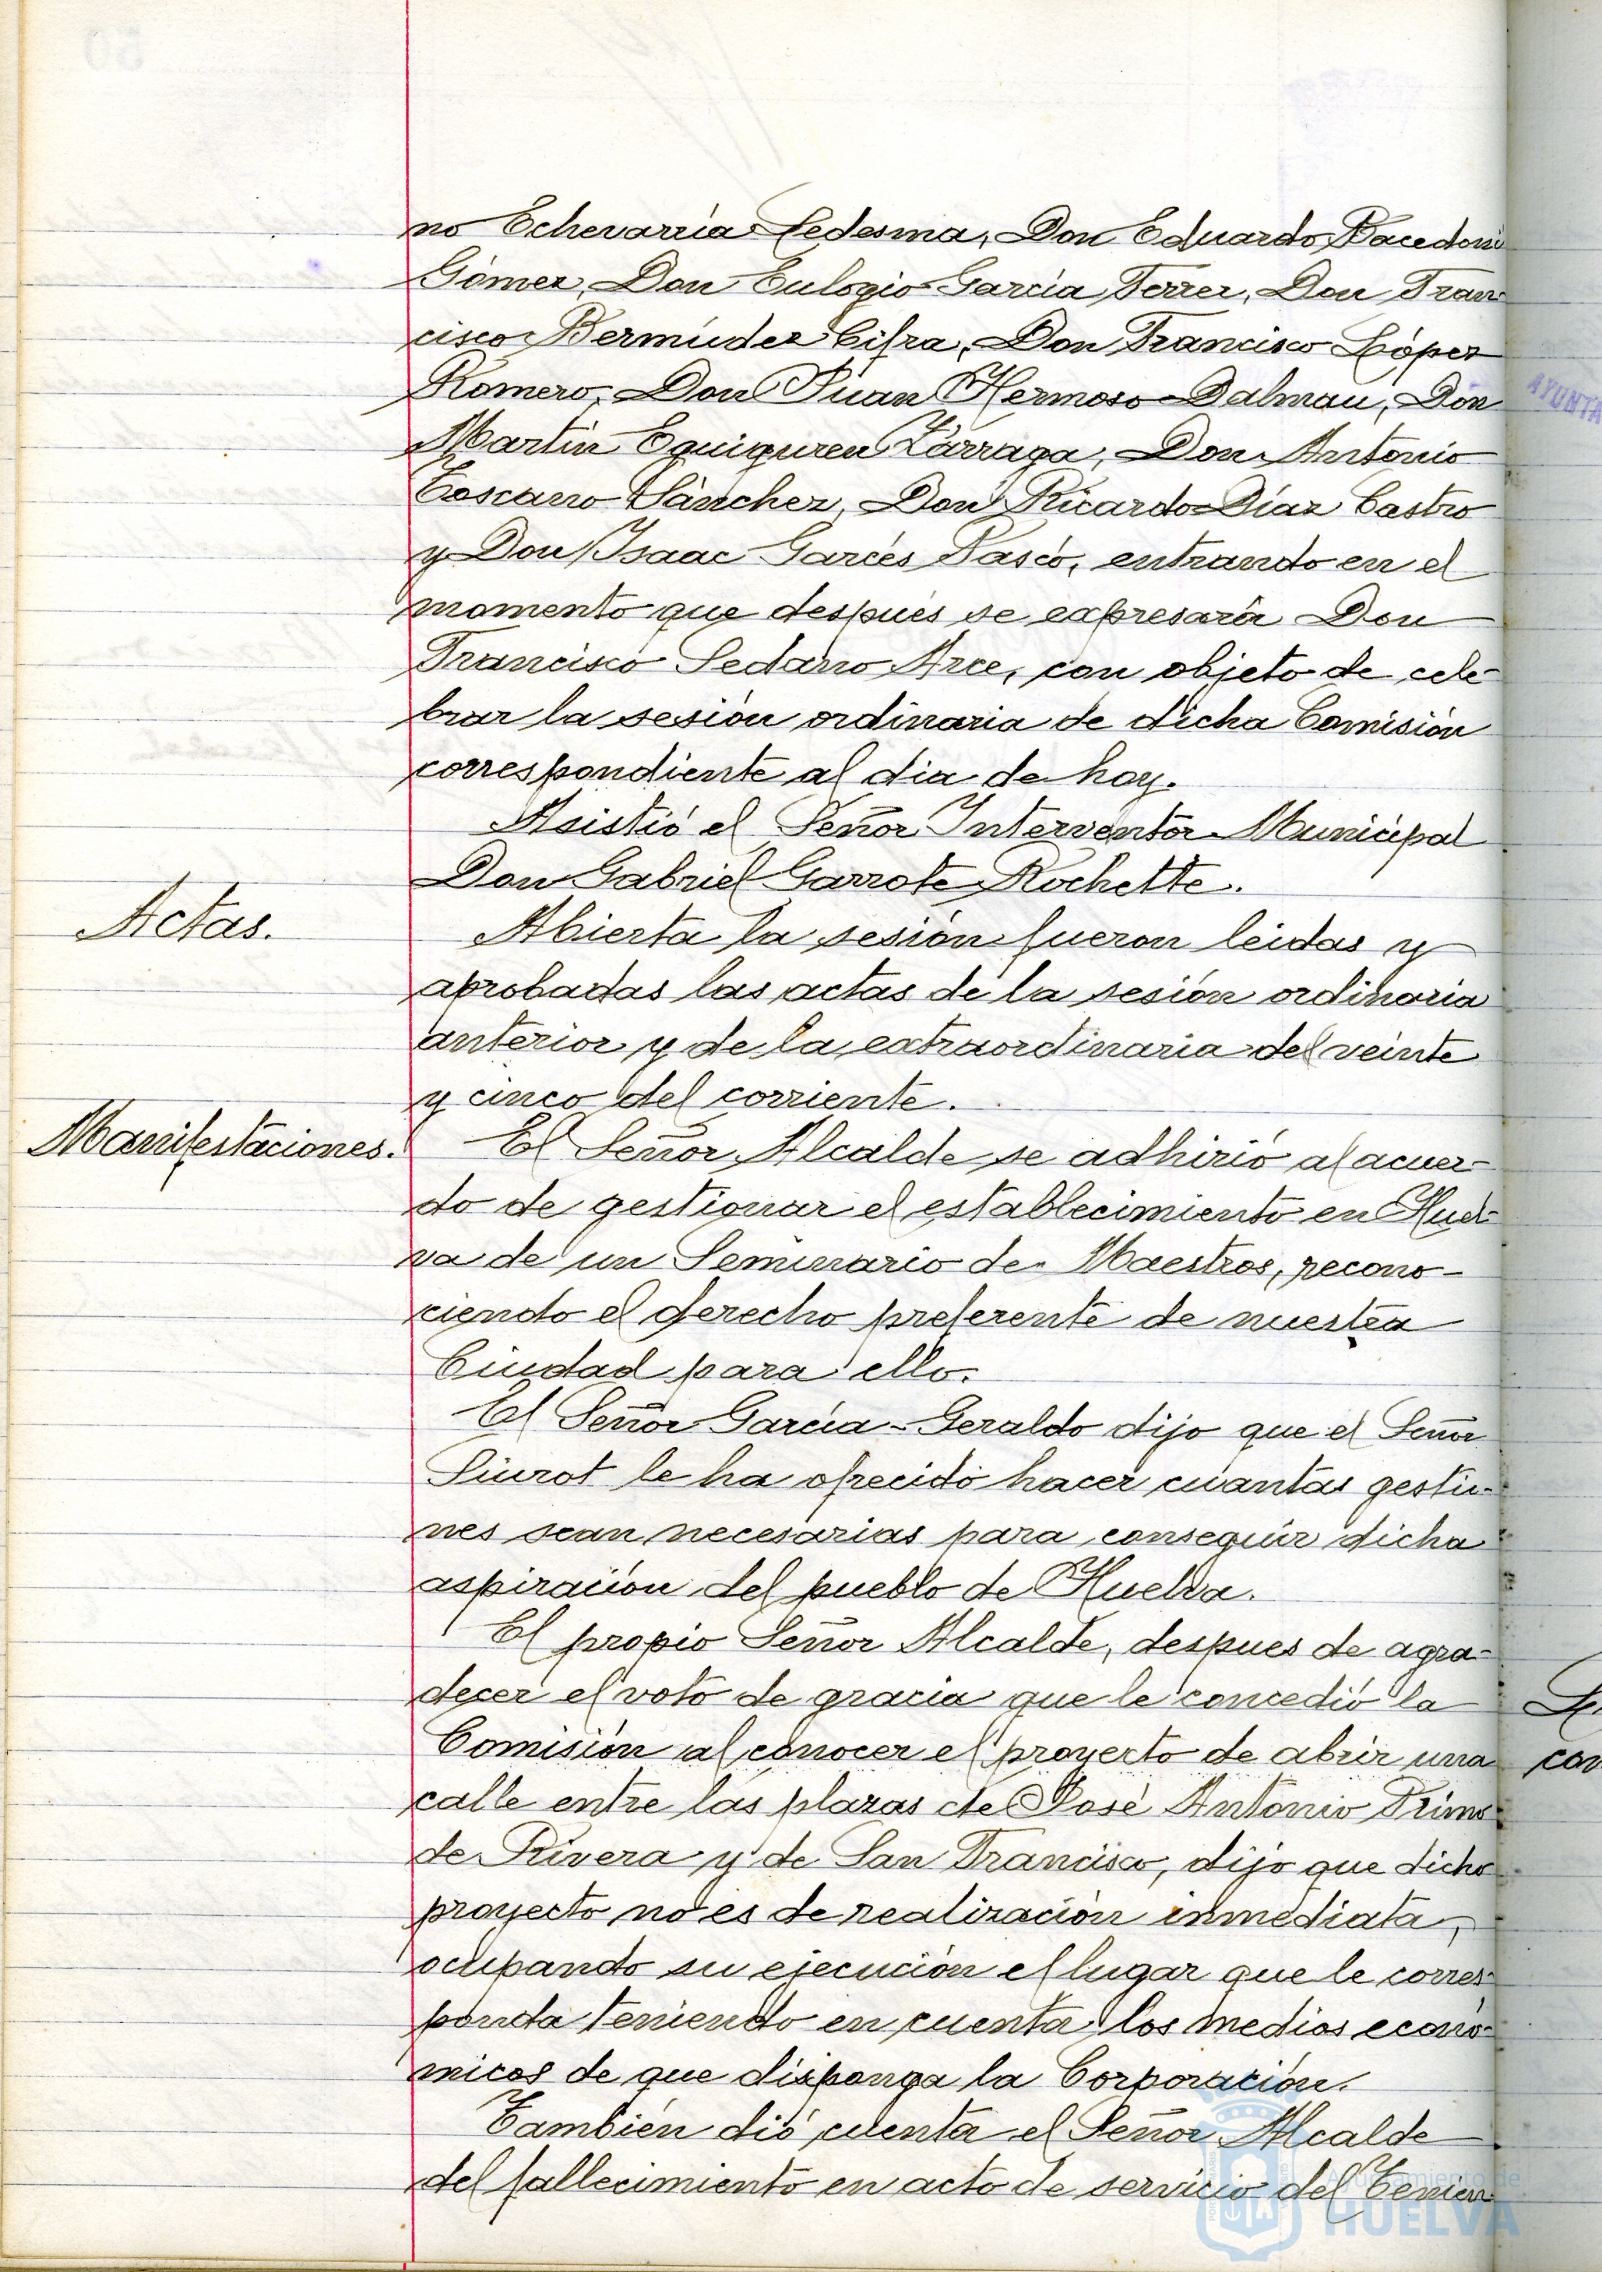 no Echevarría Ledesma, Don Eduardo Pacedoni
Gómez, Don Eulogio García Ferrer, Don Fran
cisco Bermúdez Cifra, Don Francisco López
Romero, Don Juan Hermoso Dalmau, Don
Martín Eguiguren Zárraga, Don Antonio
Toscano Sánchez, Don Ricardo Díaz Castro
y Don Isaac Garcés Pasco, entrando en el
momento que después se expresará Don
Francisco Sedano Arce, con objeto de cele
brar la sesión ordinaria de dicha Comisión
correspondiente al dia de hoy.
Asistió el Señor Interventor Municipal
Don Gabriel Garrote Rochette.
Actas.
Abierta la sesión fueron leidas y
aprobadas las actas de la sesión ordinaria
anterior y de la extraordinaria del veinte
y cinco del corriente.
Manifestaciones.
El Señor Alcalde se adhirió al acuer-
do de gestionar el establecimiento en Huel-
va de un Seminario de Maestros, recono-
ciendo el derecho preferente de nuestra
Ciudad para ello.
El Señor García-Geraldo dijo que el Señor
Siurot le ha ofrecido hacer cuantas gestio-
nes sean necesarias para conseguir dicha
aspiración del pueblo de Huelva.
El propio Señor Alcalde, despues de agra-
decer el voto de gracia que le concedió la
Comisión al conocer el proyecto de abrir una
calle entre las plazas de José Antonio Primo
de Rivera y de San Francisco, dijo que dicho
proyecto no es de realización inmediata,
ocupando su ejecución el lugar que le corres-
ponda teniendo en cuenta los medios econó-
micos de que disponga la Corporación.
También dió cuenta el Señor Alcalde
del fallecimiento en acto de servicio del Tenien
AYUNTA
con
Ayuntamiento de
HUELVA